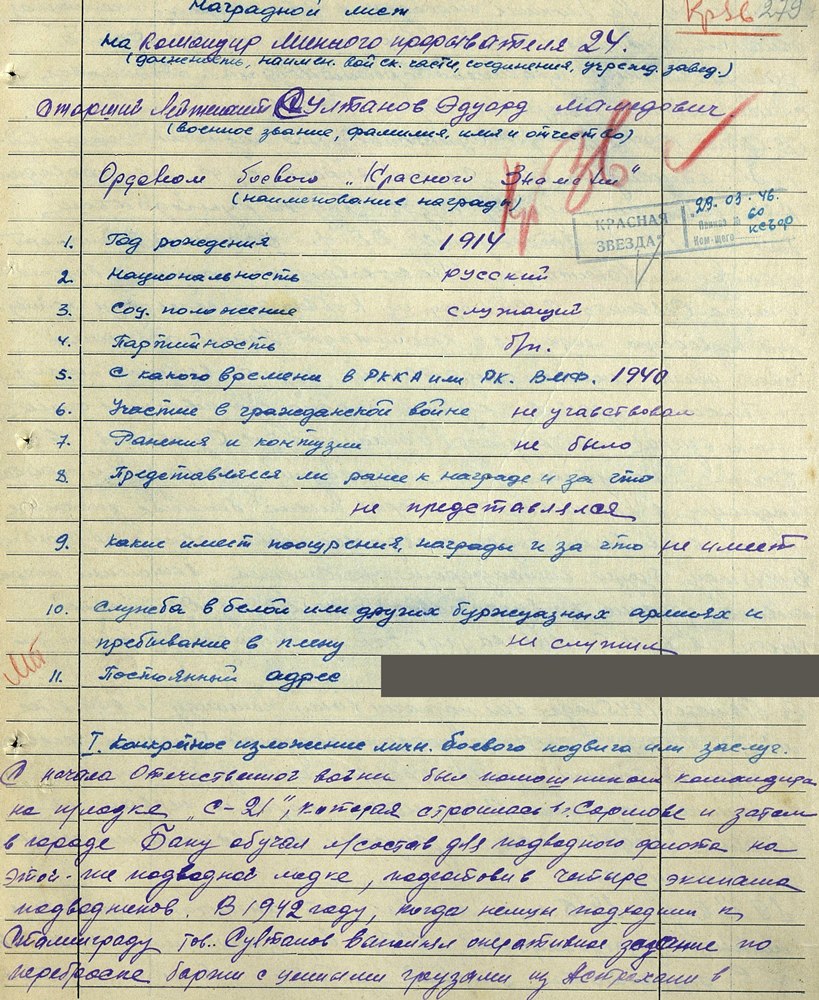 Наградной лист
Кр Зв 279
на Командир Минного прорывателя 24.
(должность, наимен. войск. части, соединения, учрежд. завед.)
Старший Лейтенант Султанов Эдуард Мамедович.
(военное звание, фамилия, имя и отчество)
Орденом боевого „Красного Знамени“
(наименование награды)
Кр Зв
КРАСНАЯ ЗВЕЗДА
29.03.46.
Приказ № 60
Ком-щего КСБФ
1. Год рождения 1914
2. Национальность русский
3. Соц. положение служащий
4. Партийность б/п.
5. С какого времени в РККА или РК. ВМФ. 1940
6. Участие в гражданской войне не учавствовал
7. Ранения и контузии не было
8. Представлялся ли ранее к награде и за что
не представлялся
9. какие имеет поощрения, награды и за что не имеет
10. служба в белой или других буржуазных армиях и
пребывание в плену не служил
11. Постоянный адрес
I. Конкретное изложение личн. боевого подвига или заслуг.
С начала Отечественной войны был помошником командира
на п/лодке „С-21“, которая строилась в г. Сормове и затем
в городе Баку обучал л/состав для подводного флота на
этой-же подводной лодке, подготовив четыре экипажа
подводников. В 1942 году, когда немцы подходили к
Сталинграду тов. Султанов выполнял оперативное задание по
переброске баржи с ценными грузами из Астрахани в